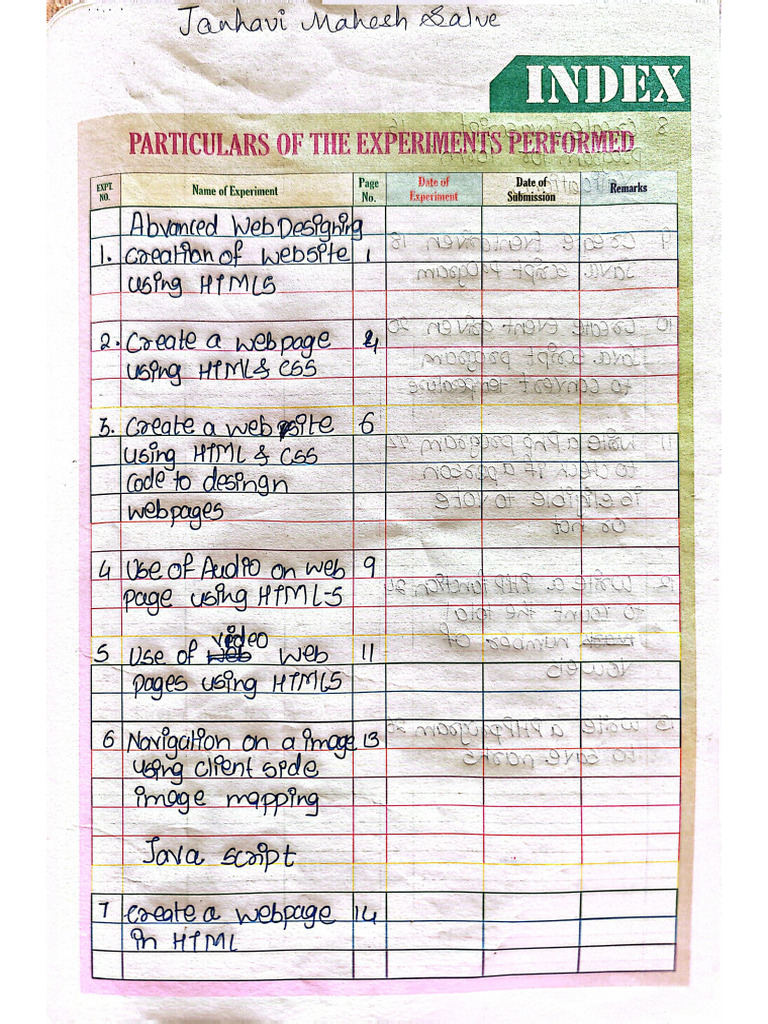 Janhavi Mahesh Salve
INDEX
PARTICULARS OF THE EXPERIMENTS PERFORMED
EXPT. NO. Name of Experiment Page No. Date of Experiment Date of Submission Remarks
Abvanced Web Designing
1. Creation of website 1
using HTML5
2. Create a webpage 4
using HTML & CSS
3. Create a website 6
using HTML & CSS
code to desingn
webpages
4 Use of Audio on web 9
page using HTML-5
video
5 Use of web web 11
pages using HTML5
6 Navigation on a image 13
using client side
image mapping
Java script
7 Create a webpage 14
in HTML